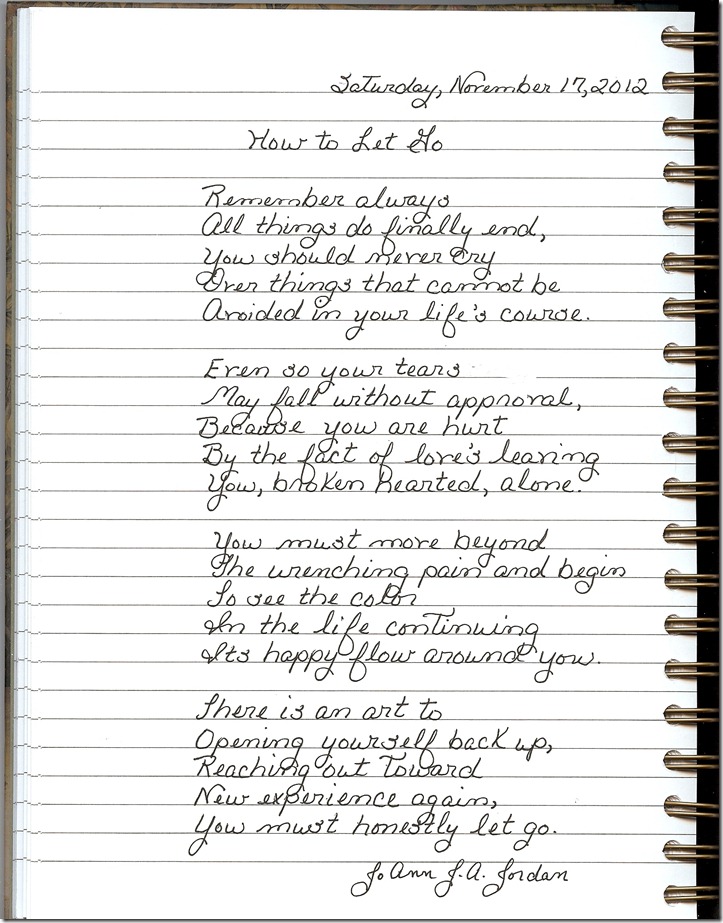 Saturday, November 17, 2012
How to Let Go
Remember always
All things do finally end,
You should never cry
Over things that cannot be
Avoided in your life's course.
Even so your tears
May fall without approval,
Because you are hurt
By the fact of love's leaving
You, broken hearted, alone.
You must move beyond
The wrenching pain and begin
To see the color
In the life continuing
Its happy flow around you.
There is an art to
Opening yourself back up,
Reaching out toward
New experience again,
You must honestly let go.
JoAnn J.A. Jordan